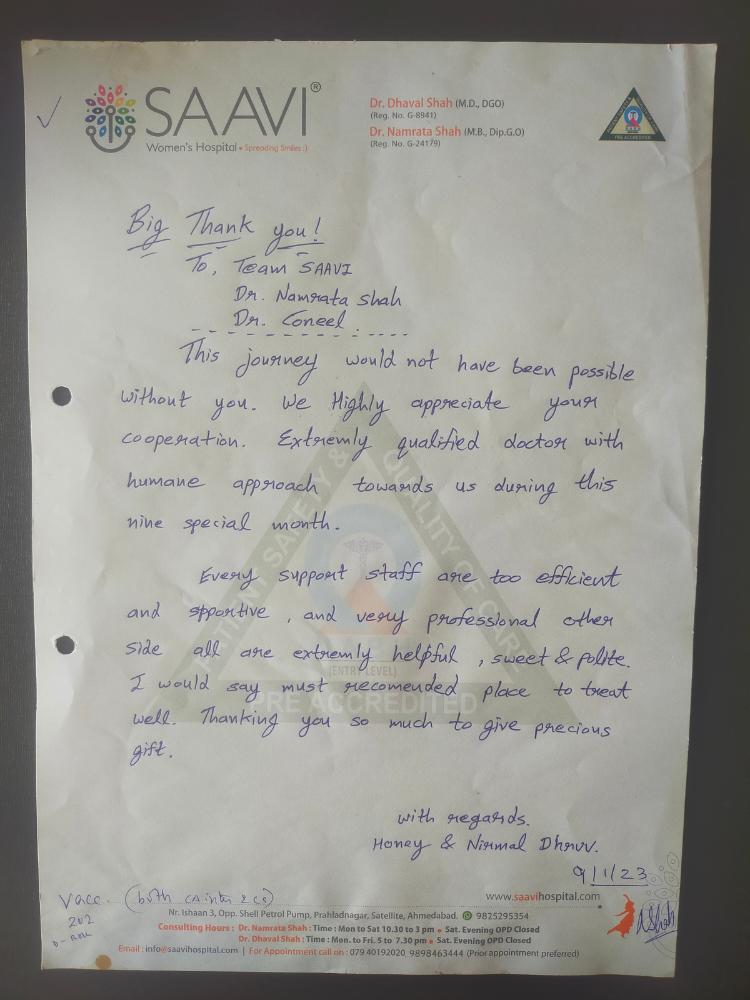 SAAVI®
Women's Hospital • Spreading Smiles :)
Dr. Dhaval Shah (M.D., DGO)
(Reg. No. G-8941)
Dr. Namrata Shah (M.B., Dip.G.O)
(Reg. No. G-24179)
PRE ACCREDITED
Big Thank you!
To, Team SAAVI
Dr. Namrata Shah
Dr. Coneel
This journey would not have been possible
without you. We Highly appreciate your
cooperation. Extremly qualified doctor with
humane approach towards us during this
nine special month.
Every support staff are too efficient
and spportive, and very professional other
side all are extremly helpful, sweet & polite.
I would say must recomended place to treat
well. Thanking you so much to give precious
gift.
PATIENT SAFETY & QUALITY OF CARE
(ENTRY LEVEL)
PRE ACCREDITED
with regards.
Honey & Nirmal Dhruv.
9/1/23
Vacc. (both
202
www.saavihospital.com
Nr. Ishaan 3, Opp. Shell Petrol Pump, Prahladnagar, Satellite, Ahmedabad. 9825295354
Consulting Hours : Dr. Namrata Shah : Time : Mon to Sat 10.30 to 3 pm • Sat. Evening OPD Closed
Dr. Dhaval Shah : Time : Mon. to Fri. 5 to 7.30 pm • Sat. Evening OPD Closed
Email : info@saavihospital.com | For Appointment call on : 079 40192020, 9898463444 (Prior appointment preferred)